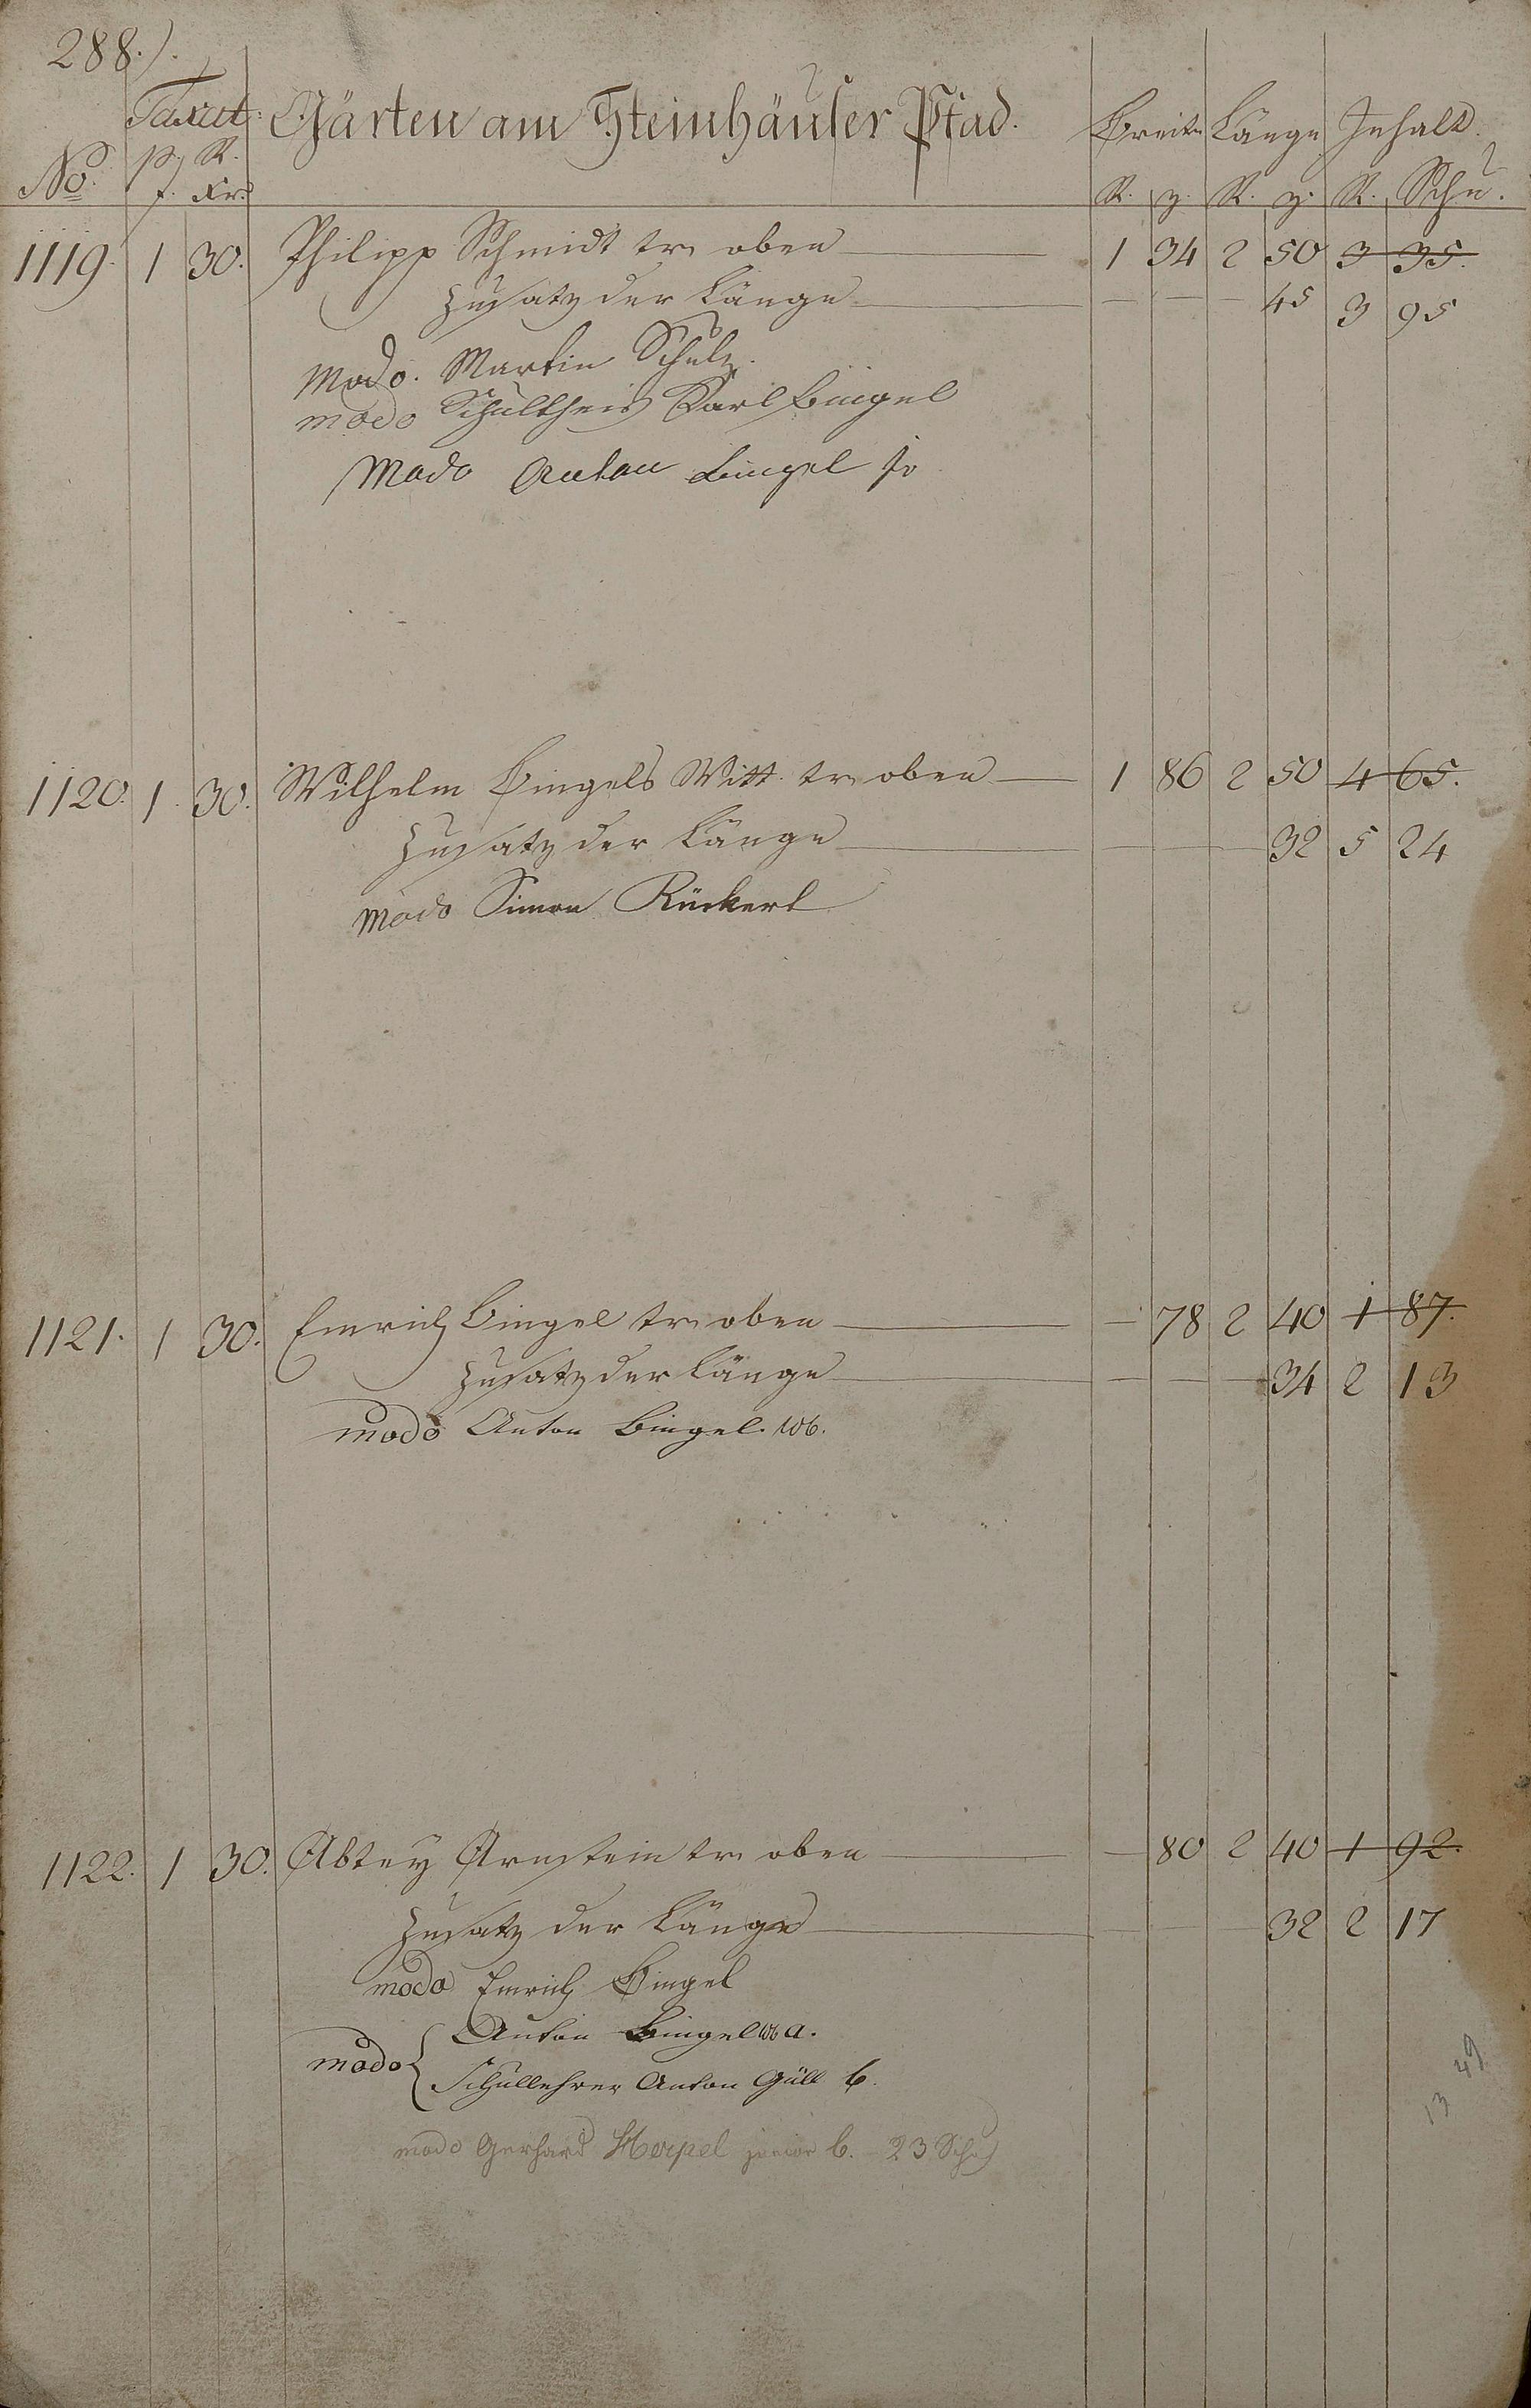 288.)
Taxat: Gärten am Steinhäuser Pfad. Breite Länge Inhalt.
No. p. R. f. Xr. R. z. R. z. R. Schu.
1119. 1 30. Philipp Schmidt tr. oben 1 34 2 50 3 35.
Zusatz der Länge 45 3 95
Modo. Martin Schulz.
modo Schultheis Karl Bingel
Modo Anton Bingel
1120. 1. 30. Wilhelm Bingels Witt. tr. oben 1 86 2 50 4 65.
Zusatz der Länge 32 5 24
Modo Simon Rückert
1121. 1 30. Emrich Bingel tr. oben 78 2 40 1 87.
Zusatz der Länge 34 2 13
modo Anton Bingel. 106.
1122. 1 30. Abtey Arnstein tr. oben 80 2 40 1 92.
Zusatz der Länge 32 2 17
modo Emrich Bingel
modo { Anton Bingel 106 a.
Schullehrer Anton Güll b.
modo Gerhard Herpel junior b. 23 Schu
49
13